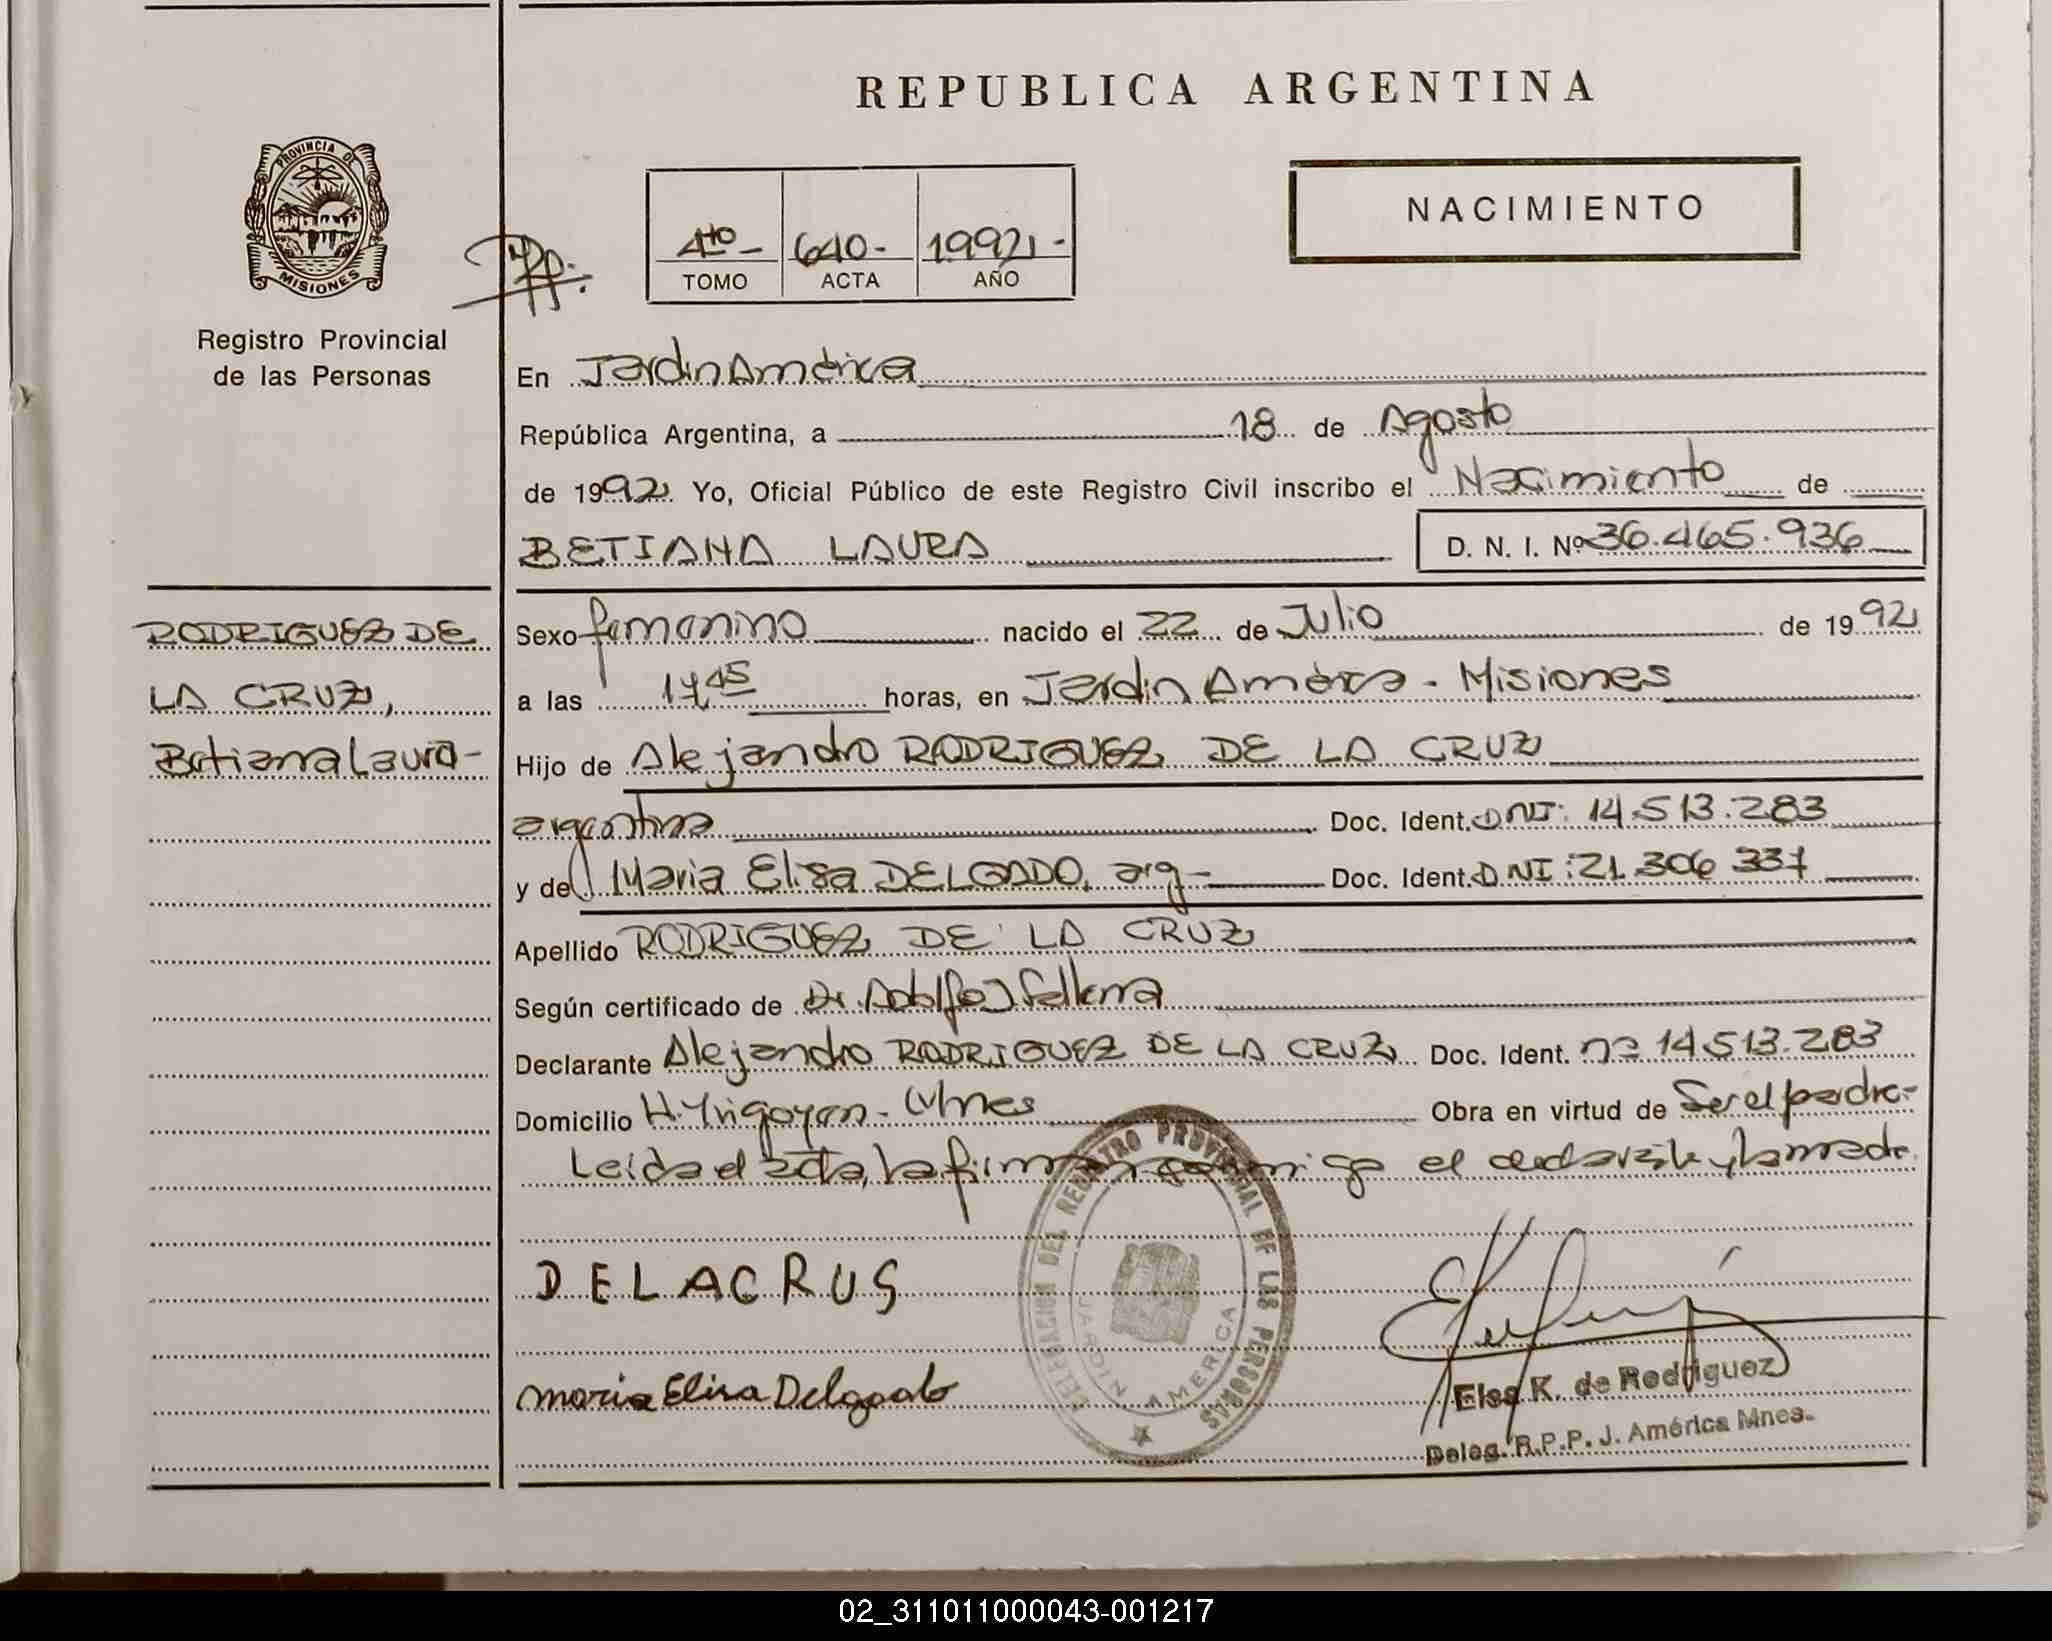 REPUBLICA ARGENTINA
PROVINCIA DE
MISIONES
Registro Provincial
de las Personas
4to - 640 - 1992 -
TOMO ACTA AÑO
NACIMIENTO
En Jardin América
República Argentina, a 18 de Agosto
de 1992 Yo, Oficial Público de este Registro Civil inscribo el Nacimiento de
BETIANA LAURA D. N. I. Nº 36.465.936
RODRIGUEZ DE
LA CRUZ,
Betiana Laura-
Sexo femenino nacido el 22 de Julio de 1992
a las 17,45 horas, en Jardin América - Misiones
Hijo de Alejandro RODRIGUEZ DE LA CRUZ
argentina Doc. Ident. DNI: 14.513.283
y de Maria Elisa DELGADO, arg- Doc. Ident. DNI: 21.306 337
Apellido RODRIGUEZ DE LA CRUZ
Según certificado de Dr. Adolfo J
Declarante Alejandro RODRIGUEZ DE LA CRUZ Doc. Ident. nº 14.513.283
Domicilio H. Yrigoyen - Mnes Obra en virtud de Ser el padre-
Leida el acta, la firman conmigo el declarante y la madre.
DELACRUS
Maria Elisa Delgado
DELEGACION DEL REGISTRO PROVINCIAL DE LAS PERSONAS
JARDIN AMERICA
Elsa K. de Rodriguez
Deleg. R.P.P. J. América Mnes.
02_311011000043-001217